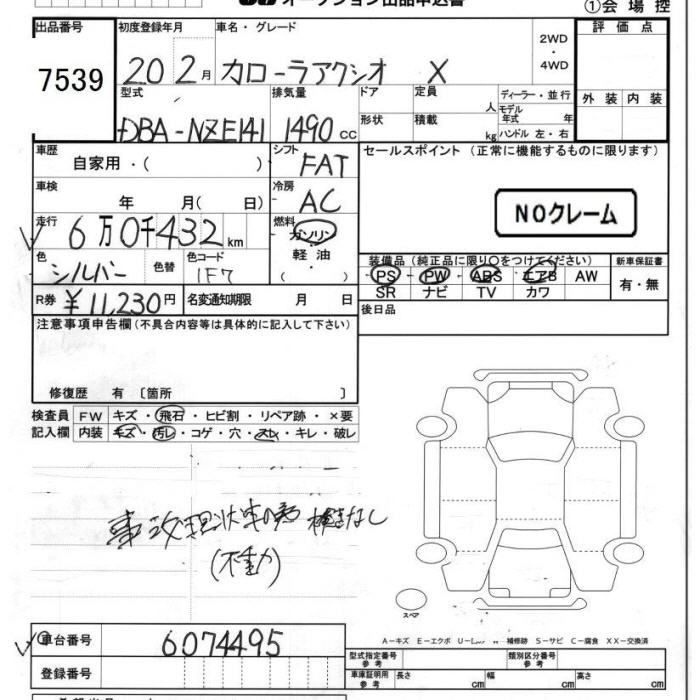 オークション出品申込書
①会場控
出品番号 初度登録年月 車名・グレード 評価点
7539 20 2月 カローラアクシオ X 2WD・4WD
型式 排気量 ドア 定員 人 ディーラー・並行 外装 内装
DBA-NZE141 1490cc 形状 積載 kg モデル年式 年
ハンドル 左・右
車歴 シフト セールスポイント (正常に機能するものに限ります)
自家用・( ) FAT
車検 冷房
年 月( 日) AC NOクレーム
走行 燃料
6万0千432km ガソリン
軽油
( )
色 色替 色コード 装備品 (純正品に限り○をつけてください) 新車保証書
シルバー 1F7 PS - PW - ABS エアB AW 有・無
SR ナビ TV カワ
R券 ¥11,230円 名変通知期限 月 日 後日品
注意事項申告欄(不具合内容等は具体的に記入して下さい)
修復歴 有 〔箇所 〕
検査員 FW キズ・飛石・ヒビ割・リペア跡・×要
記入欄 内装 キズ・汚レ・コゲ・穴・スレ・キレ・破レ
事故現状車の為 検査なし
(不動)
スペア
A-キズ E-エクボ U- 補修跡 S-サビ C-腐食 XX-交換済
車台番号 6074495
型式指定番号 参考 類別区分番号 参考
登録番号 車庫証明用 参考 長さ cm 幅 cm 高さ cm